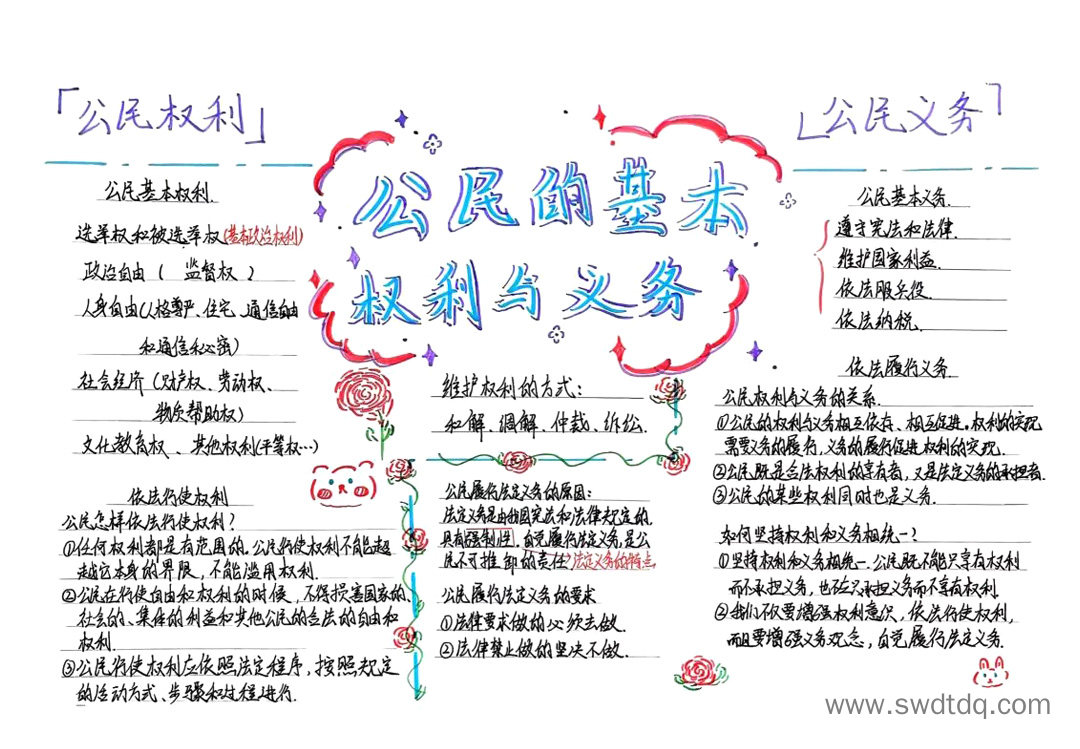 「公民权利」
公民基本权利.
选举权和被选举权(基本政治权利)
政治自由( 监督权 )
人身自由(人格尊严、住宅、通信自由
和通信秘密)
社会经济(财产权、劳动权、
物质帮助权)
文化教育权、其他权利(平等权…)
依法行使权利
公民怎样依法行使权利?
①任何权利都是有范围的.公民行使权利不能超
越它本身的界限,不能滥用权利.
②公民在行使自由和权利的时候,不得损害国家的、
社会的、集体的利益和其他公民的合法的自由和
权利.
③公民行使权利应依照法定程序,按照规定
的活动方式、步骤和过程进行.
公民的基本
权利与义务
维护权利的方式:
和解、调解、仲裁、诉讼.
公民履行法定义务的原因:
法定义务是由我国宪法和法律规定的.
具有强制性.自觉履行法定义务,是公
民不可推卸的责任?法定义务的特点.
公民履行法定义务的要求
①法律要求做的必须去做.
②法律禁止做的坚决不做.
「公民义务」
公民基本义务.
遵守宪法和法律.
维护国家利益.
依法服兵役.
依法纳税.
依法履行义务
公民权利与义务的关系.
①公民的权利与义务相互依存、相互促进.权利的实现
需要义务的履行,义务的履行促进权利的实现.
②公民既是合法权利的享有者,又是法定义务的承担者.
③公民的某些权利同时也是义务.
如何坚持权利和义务相统一?
①坚持权利和义务相统一.公民既不能只享有权利
而不承担义务,也不应只承担义务而不享有权利.
②我们不仅要增强权利意识,依法行使权利,
而且要增强义务观念,自觉履行法定义务.
www.swdtdq.com